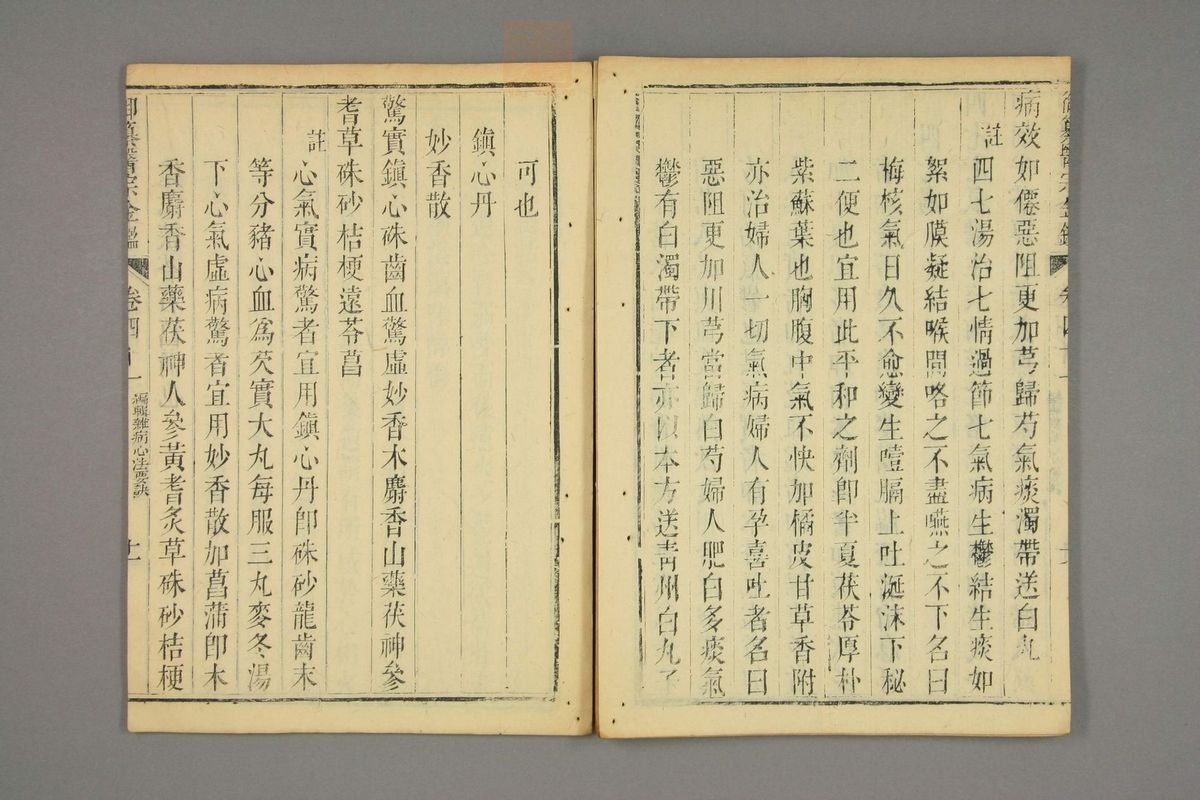 病效如僊惡阻更加芎歸芍氣痰濁帶送白丸
註四七湯治七情過節七氣病生鬱結生痰如
絮如膜凝結喉間咯之不盡嚥之不下名曰
梅核氣日久不愈變生噎膈上吐涎沫下秘
二便也宜用此平和之劑卽半夏茯苓厚朴
紫蘇葉也胸腹中氣不快加橘皮甘草香附
亦治婦人一切氣病婦人有孕喜吐者名曰
惡阻更加川芎當歸白芍婦人肥白多痰氣
鬱有白濁帶下者亦以本方送青州白丸子
可也
鎭心丹
妙香散
驚實鎭心硃齒血驚虛妙香木麝香山藥茯神參
耆草硃砂桔梗遠苓菖
註心氣實病驚者宜用鎭心丹卽硃砂龍齒末
等分豬心血爲芡實大丸每服三丸麥冬湯
下心氣虛病驚者宜用妙香散加菖蒲卽木
香麝香山藥茯神人參黃耆炙草硃砂桔梗
御纂醫宗金鑑
卷四十一
編輯雜病心法要訣